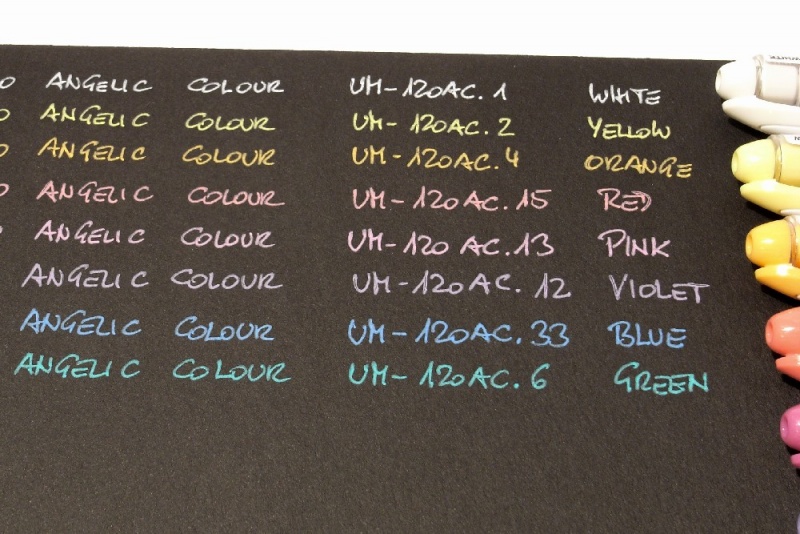 O ANGELIC COLOUR UM-120AC.1 WHITE
O ANGELIC COLOUR UM-120AC.2 YELLOW
O ANGELIC COLOUR UM-120AC.4 ORANGE
O ANGELIC COLOUR UM-120AC.15 RED
ANGELIC COLOUR UM-120AC.13 PINK
ANGELIC COLOUR UM-120AC.12 VIOLET
ANGELIC COLOUR UM-120AC.33 BLUE
ANGELIC COLOUR UM-120AC.6 GREEN